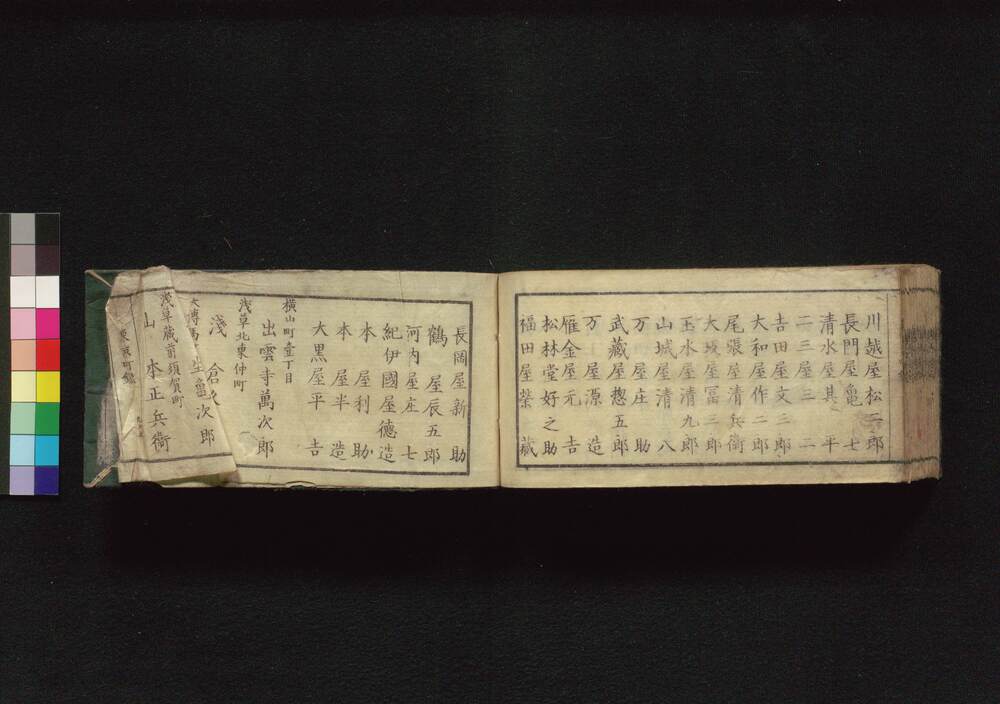 川越屋松二郎
長門屋亀七
清水屋其平
二三屋三二
吉田屋文三郎
大和屋作二郎
尾張屋清兵衛
大坂屋冨三郎
玉水屋清九郎
山城屋清八
万屋庄助
武藏屋惣五郎
万屋源造
雁金屋元吉
松林堂好之助
福田屋榮藏
長岡屋新助
鶴屋辰五郎
河内屋庄七
紀伊國屋德造
本屋利助
本屋半造
大黒屋平吉
横山町壹丁目
出雲寺萬次郎
浅草北東仲町
浅倉久
次郎
浅草蔵前須賀町
山本正兵衛